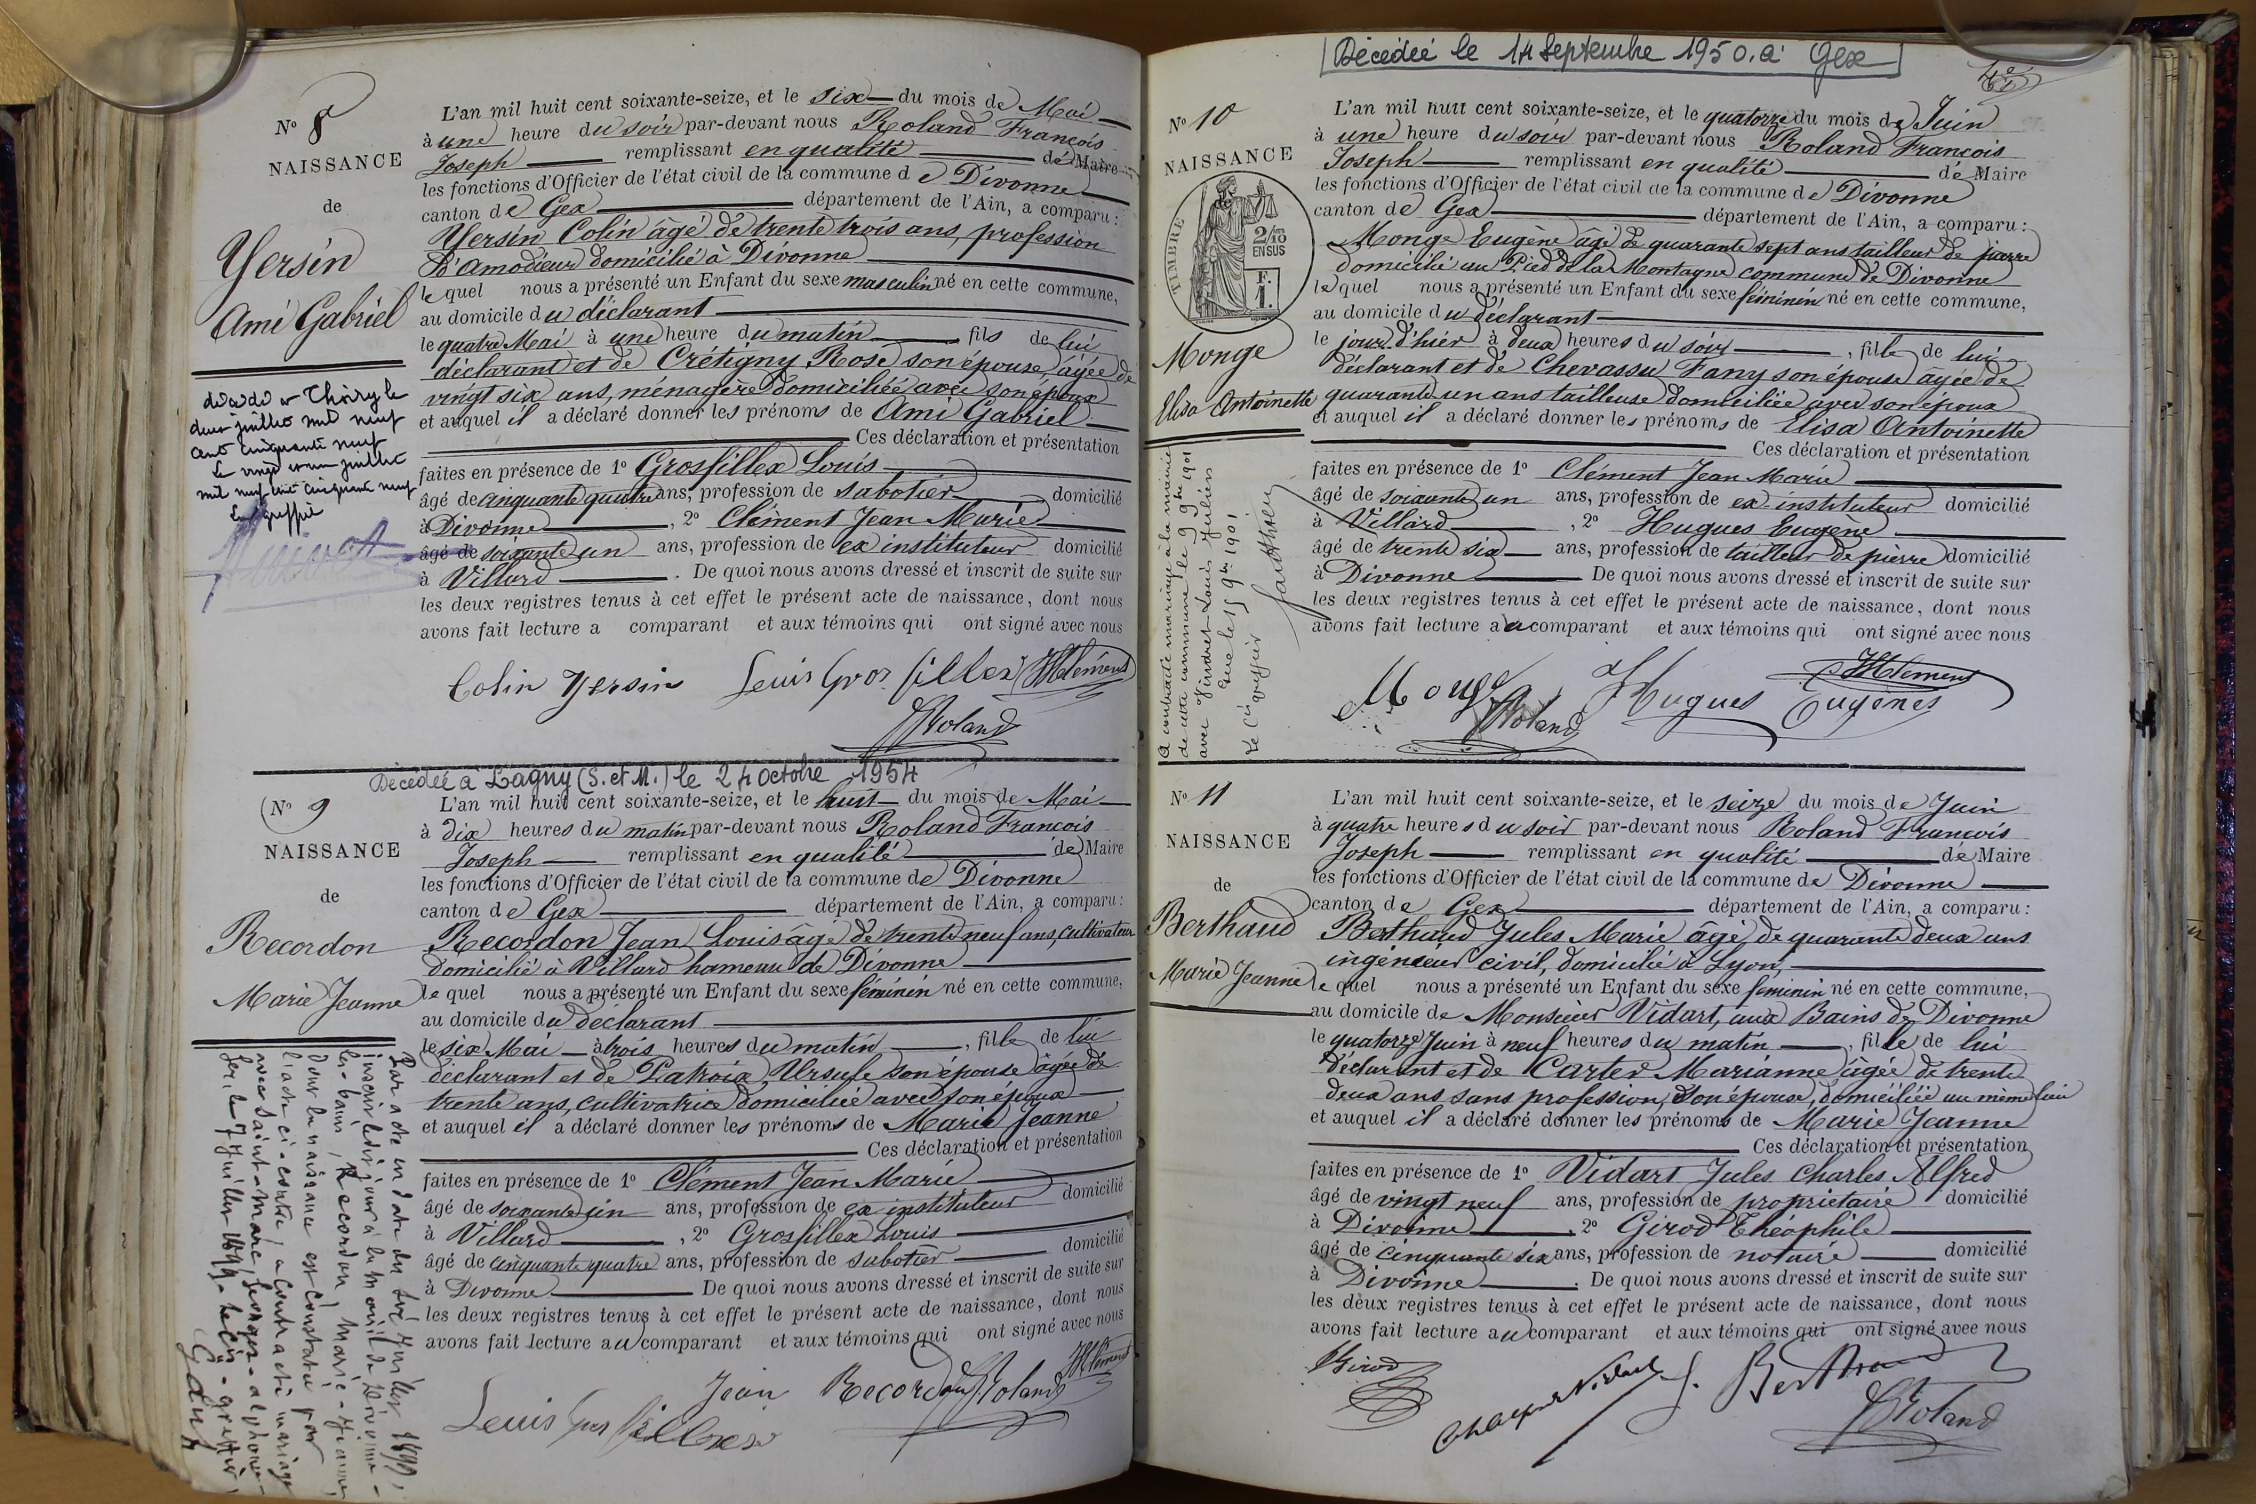 N° 8
NAISSANCE
de
Yersin
Ami Gabriel
décédé à Thoiry le
deux juillet mil neuf
cent cinquante neuf
Le vingt et un juillet
mil neuf cent cinquante neuf
Le greffier
L'an mil huit cent soixante-seize, et le six du mois de Mai
à une heure du soir par-devant nous Roland François
Joseph remplissant en qualité de Maire
les fonctions d'Officier de l'état civil de la commune de Divonne
canton de Gex département de l'Ain, a comparu :
Yersin Colin âgé de trente trois ans, profession
d'Amodieur domicilié à Divonne
lequel nous a présenté un Enfant du sexe masculin né en cette commune,
au domicile du déclarant
le quatre Mai à une heure du matin, fils de lui
déclarant et de Crétigny Rose son épouse, âgée de
vingt six ans, ménagère domiciliée avec son époux
et auquel il a déclaré donner les prénoms de Ami Gabriel
Ces déclaration et présentation
faites en présence de 1° Grosfillex Louis
âgé de cinquante quatre ans, profession de sabotier domicilié
à Divonne, 2° Clément Jean Marie
âgé de soixante un ans, profession de ex instituteur domicilié
à Villard. De quoi nous avons dressé et inscrit de suite sur
les deux registres tenus à cet effet le présent acte de naissance, dont nous
avons fait lecture a comparant et aux témoins qui ont signé avec nous
Colin Yersin Louis Gros fillex JMClément
Roland
Décédée à Lagny (S. et M.) le 24 octobre 1954
N° 9
NAISSANCE
de
Recordon
Marie Jeanne
Par acte en date du six Juillet 1899,
inscrit ledit jour à la mairie de Divonne-
les-bains, Recordon, Marie-Jeanne,
dont la naissance est constatée par
l'acte ci-contre, a contracté mariage
avec Saint-Marc, Georges-Alphonse-
Le 7 Juillet 1899. Le Cis-greffier,
L'an mil huit cent soixante-seize, et le huit du mois de Mai
à dix heures du matin par-devant nous Roland François
Joseph remplissant en qualité de Maire
les fonctions d'Officier de l'état civil de la commune de Divonne
canton de Gex département de l'Ain, a comparu :
Recordon Jean Louis âgé de trente neuf ans, cultivateur
domicilié à Villard hameau de Divonne
lequel nous a présenté un Enfant du sexe féminin né en cette commune,
au domicile du déclarant
le six Mai à trois heures du matin, fille de lui
déclarant et de Patroix, Ursule son épouse âgée de
trente ans, cultivatrice domiciliée avec son époux
et auquel il a déclaré donner les prénoms de Marie Jeanne
Ces déclaration et présentation
faites en présence de 1° Clément Jean Marie
âgé de soixante un ans, profession de ex instituteur domicilié
à Villard, 2° Grosfillex Louis
âgé de cinquante quatre ans, profession de sabotier domicilié
à Divonne De quoi nous avons dressé et inscrit de suite sur
les deux registres tenus à cet effet le présent acte de naissance, dont nous
avons fait lecture au comparant et aux témoins qui ont signé avec nous
Louis Gros fillex Jean Recordon Roland JMClément
Décédée le 14 Septembre 1950. à Gex
N° 10
NAISSANCE
TIMBRE
2/10
EN SUS
F.
1.
Monge
Elisa Antoinette
A contracté mariage à la mairie
de cette commune le 9 9bre 1901
avec Vindret Louis Julien
Gex le 15 9bre 1901
Le Cis greffier
L'an mil huit cent soixante-seize, et le quatorze du mois de Juin
à une heure du soir par-devant nous Roland François
Joseph remplissant en qualité de Maire
les fonctions d'Officier de l'état civil de la commune de Divonne
canton de Gex département de l'Ain, a comparu :
Monge Eugène âgé de quarante sept ans tailleur de pierre
domicilié au Pied de la Montagne commune de Divonne
lequel nous a présenté un Enfant du sexe féminin né en cette commune,
au domicile du déclarant
le jour d'hier à deux heures du soir, fille de lui
déclarant et de Chevassu Fany son épouse âgée de
quarante un ans tailleuse domiciliée avec son époux
et auquel il a déclaré donner les prénoms de Elisa Antoinette
Ces déclaration et présentation
faites en présence de 1° Clément Jean Marie
âgé de soixante un ans, profession de ex instituteur domicilié
à Villard, 2° Hugues Eugène
âgé de trente six ans, profession de tailleur de pierre domicilié
à Divonne De quoi nous avons dressé et inscrit de suite sur
les deux registres tenus à cet effet le présent acte de naissance, dont nous
avons fait lecture au comparant et aux témoins qui ont signé avec nous
Monge Roland Hugues Eugènes JMClément
N° 11
NAISSANCE
de
Berthaud
Marie Jeanne
L'an mil huit cent soixante-seize, et le seize du mois de Juin
à quatre heures du soir par-devant nous Roland François
Joseph remplissant en qualité de Maire
les fonctions d'Officier de l'état civil de la commune de Divonne
canton de Gex département de l'Ain, a comparu :
Berthaud Jules Marie âgé de quarante deux ans
ingénieur civil, domicilié à Lyon,
lequel nous a présenté un Enfant du sexe féminin né en cette commune,
au domicile de Monsieur Vidart, aux Bains de Divonne
le quatorze Juin à neuf heures du matin, fille de lui
déclarant et de Carter Marianne âgée de trente
deux ans sans profession, son épouse, domiciliée au même lieu
et auquel il a déclaré donner les prénoms de Marie Jeanne
Ces déclaration et présentation
faites en présence de 1° Vidart Jules Charles Alfred
âgé de vingt neuf ans, profession de propriétaire domicilié
à Divonne, 2° Girod Théophile
âgé de cinquante six ans, profession de notaire domicilié
à Divonne. De quoi nous avons dressé et inscrit de suite sur
les deux registres tenus à cet effet le présent acte de naissance, dont nous
avons fait lecture au comparant et aux témoins qui ont signé avec nous
Girod J. Berthaud
Roland